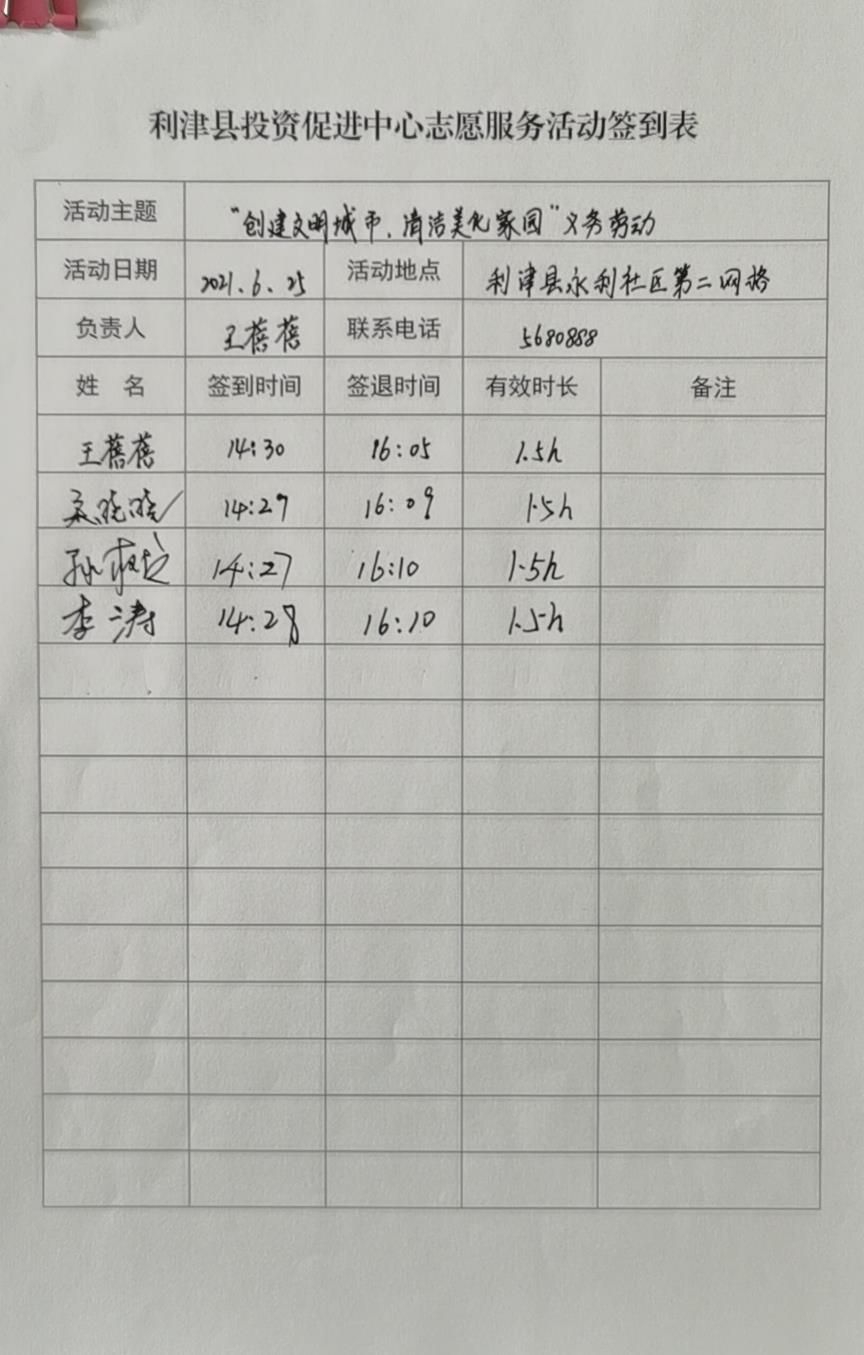 利津县投资促进中心志愿服务活动签到表
活动主题 “创建文明城市、清洁美化家园”义务劳动
活动日期 2021.6.25 活动地点 利津县永利社区第二网格
负责人 王蓓蓓 联系电话 5680888
姓 名 签到时间 签退时间 有效时长 备注
王蓓蓓 14:30 16:05 1.5h
晓晓 14:27 16:09 1.5h
孙 14:27 16:10 1.5h
李涛 14:28 16:10 1.5h